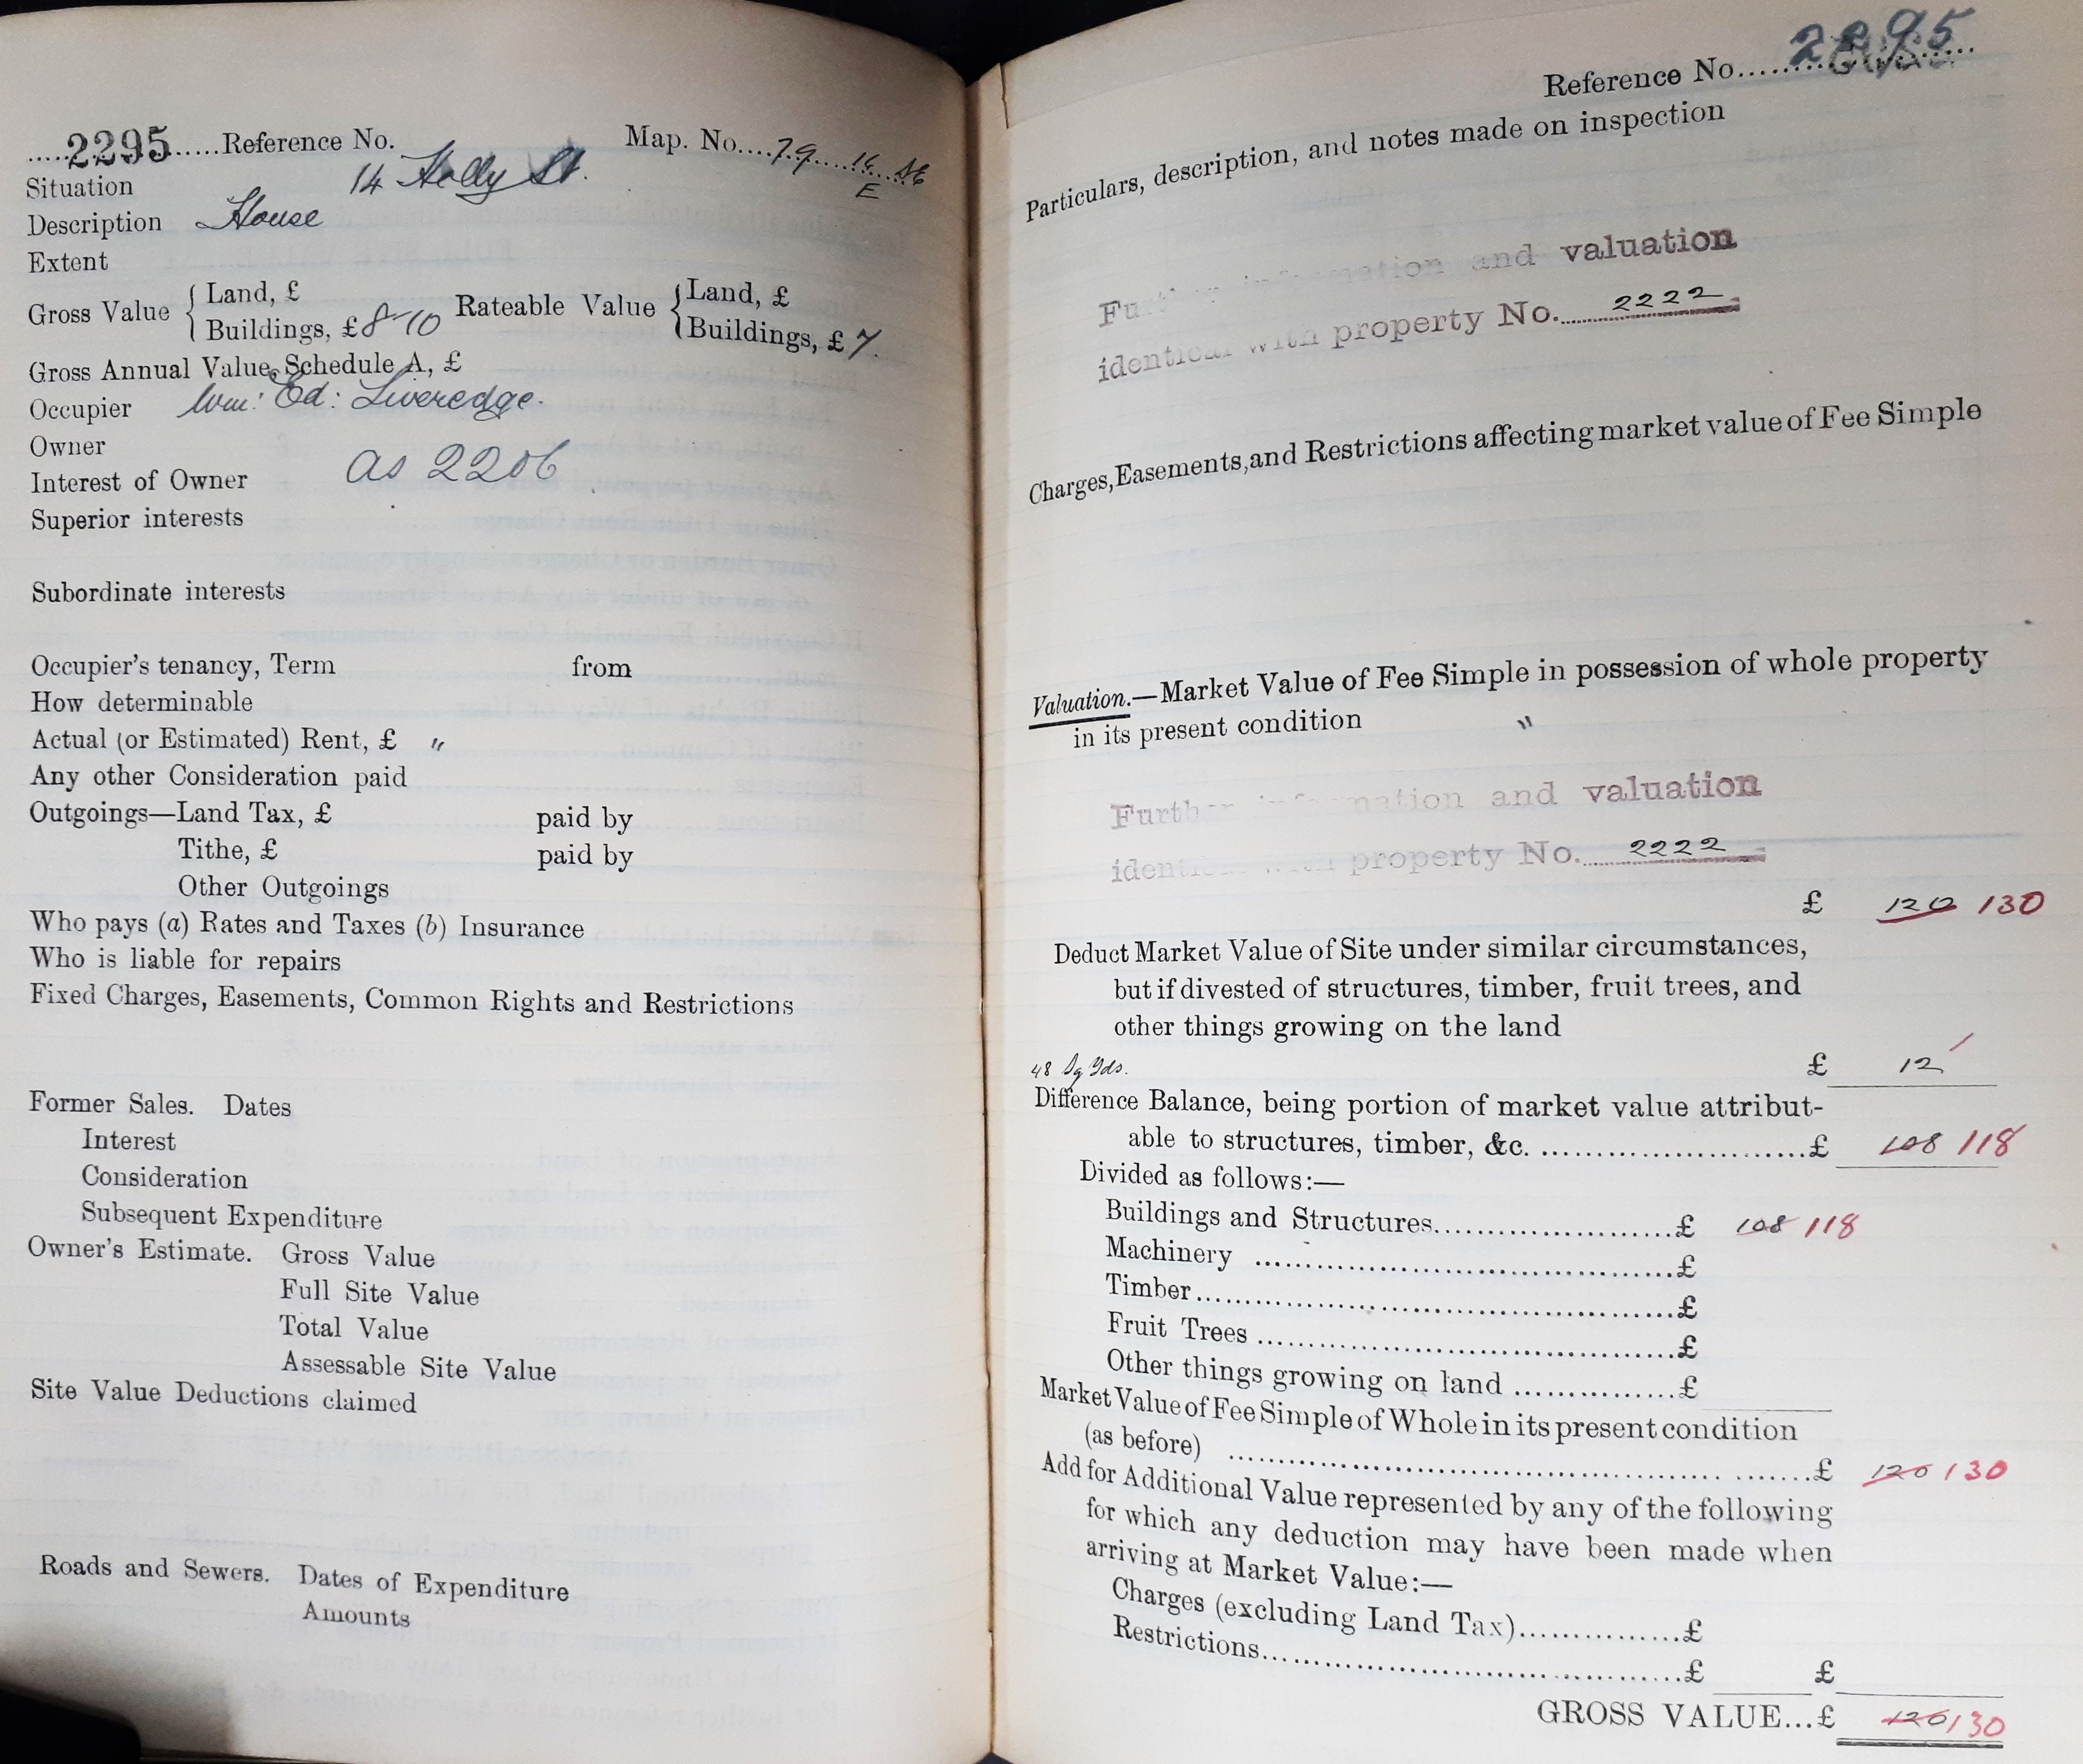 2295 Reference No. Map. No. 79 16 SE
E
Situation 14 Holly St.
Description House
Extent
Gross Value { Land, £ Rateable Value { Land, £
Buildings, £ 8-10 Buildings, £ 7.
Gross Annual Value, Schedule A, £
Occupier Wm: Ed: Liveredge.
Owner
Interest of Owner as 2206
Superior interests
Subordinate interests
Occupier's tenancy, Term from
How determinable
Actual (or Estimated) Rent, £ "
Any other Consideration paid
Outgoings—Land Tax, £ paid by
Tithe, £ paid by
Other Outgoings
Who pays (a) Rates and Taxes (b) Insurance
Who is liable for repairs
Fixed Charges, Easements, Common Rights and Restrictions
Former Sales. Dates
Interest
Consideration
Subsequent Expenditure
Owner's Estimate. Gross Value
Full Site Value
Total Value
Assessable Site Value
Site Value Deductions claimed
Roads and Sewers. Dates of Expenditure
Amounts
Reference No. 2295
Particulars, description, and notes made on inspection
Further information and valuation
identical with property No. 2222
Charges, Easements, and Restrictions affecting market value of Fee Simple
Valuation.—Market Value of Fee Simple in possession of whole property
in its present condition "
Further information and valuation
identical with property No. 2222
£ 120 130
Deduct Market Value of Site under similar circumstances,
but if divested of structures, timber, fruit trees, and
other things growing on the land
48 Sq Yds. £ 12
Difference Balance, being portion of market value attribut-
able to structures, timber, &c. £ 108 118
Divided as follows:—
Buildings and Structures £ 108 118
Machinery £
Timber £
Fruit Trees £
Other things growing on land £
Market Value of Fee Simple of Whole in its present condition
(as before) £ 120 130
Add for Additional Value represented by any of the following
for which any deduction may have been made when
arriving at Market Value:—
Charges (excluding Land Tax) £
Restrictions £ £
GROSS VALUE...£ 120 130